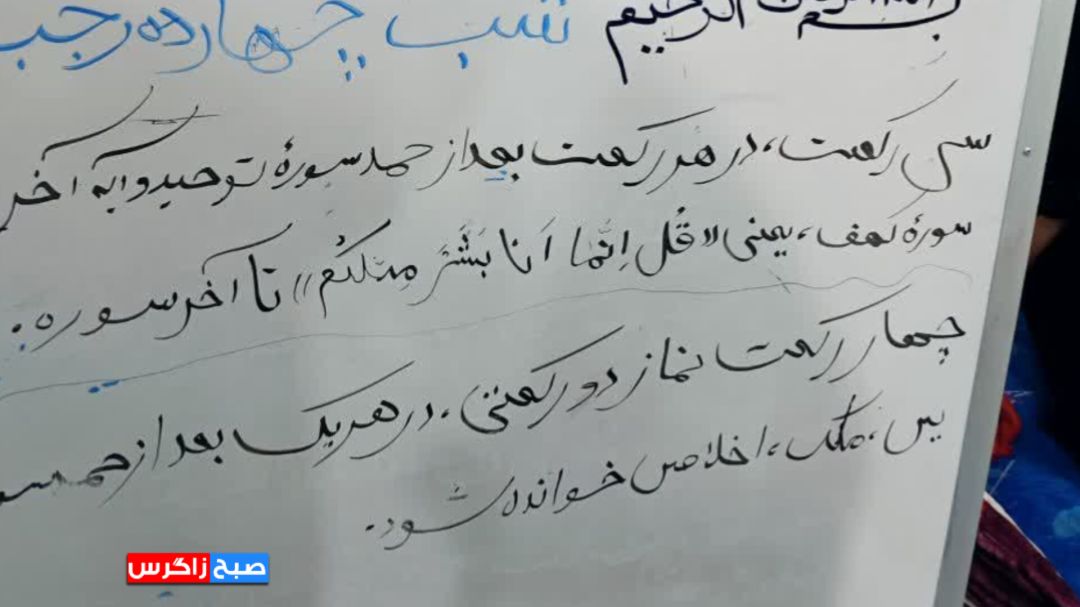 بسم الله الرحمن الرحیم شب چهارده رجب
سی رکعت، در هر رکعت بعد از حمد سورهٔ توحید و آیه آخر
سورهٔ کهف، یعنی «قُل اِنَّما اَنا بَشَرٌ مِثلُکُم» تا آخر سوره.
چهار رکعت نماز دو رکعتی، در هر یک بعد از حمد
یس، ملک، اخلاص خوانده شود.
صبح زاگرس